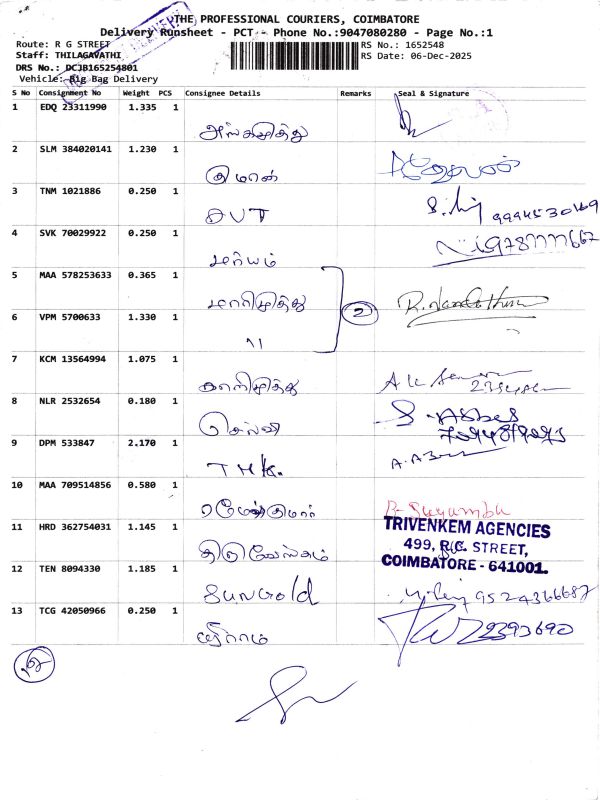 THE PROFESSIONAL COURIERS, COIMBATORE
Delivery Runsheet - PCT - Phone No.:9047080280 - Page No.:1
Route: R G STREET
Staff: THILAGAVATHI
DRS No.: DCJB165254801
Vehicle: Big Bag Delivery
RS No.: 1652548
RS Date: 06-Dec-2025
S No Consignment No Weight PCS Consignee Details Remarks Seal & Signature
1 EDQ 23311990 1.335 1
2 SLM 384020141 1.230 1 குமரன்
3 TNM 1021886 0.250 1 AVT 9994530169
4 SVK 70029922 0.250 1 மரியம்
5 MAA 578253633 0.365 1 மாரிமுத்து 2
6 VPM 5700633 1.330 1 11
7 KCM 13564994 1.075 1 காளிமுத்து
8 NLR 2532654 0.180 1 செல்வி
9 DPM 533847 2.170 1 THK.
10 MAA 709514856 0.580 1 ரமேஷ்குமார்
11 HRD 362754031 1.145 1
TRIVENKEM AGENCIES
499, R.G. STREET,
COIMBATORE - 641001.
12 TEN 8094330 1.185 1 SunGold 9524366687
13 TCG 42050966 0.250 1 ஸ்ரீராம்